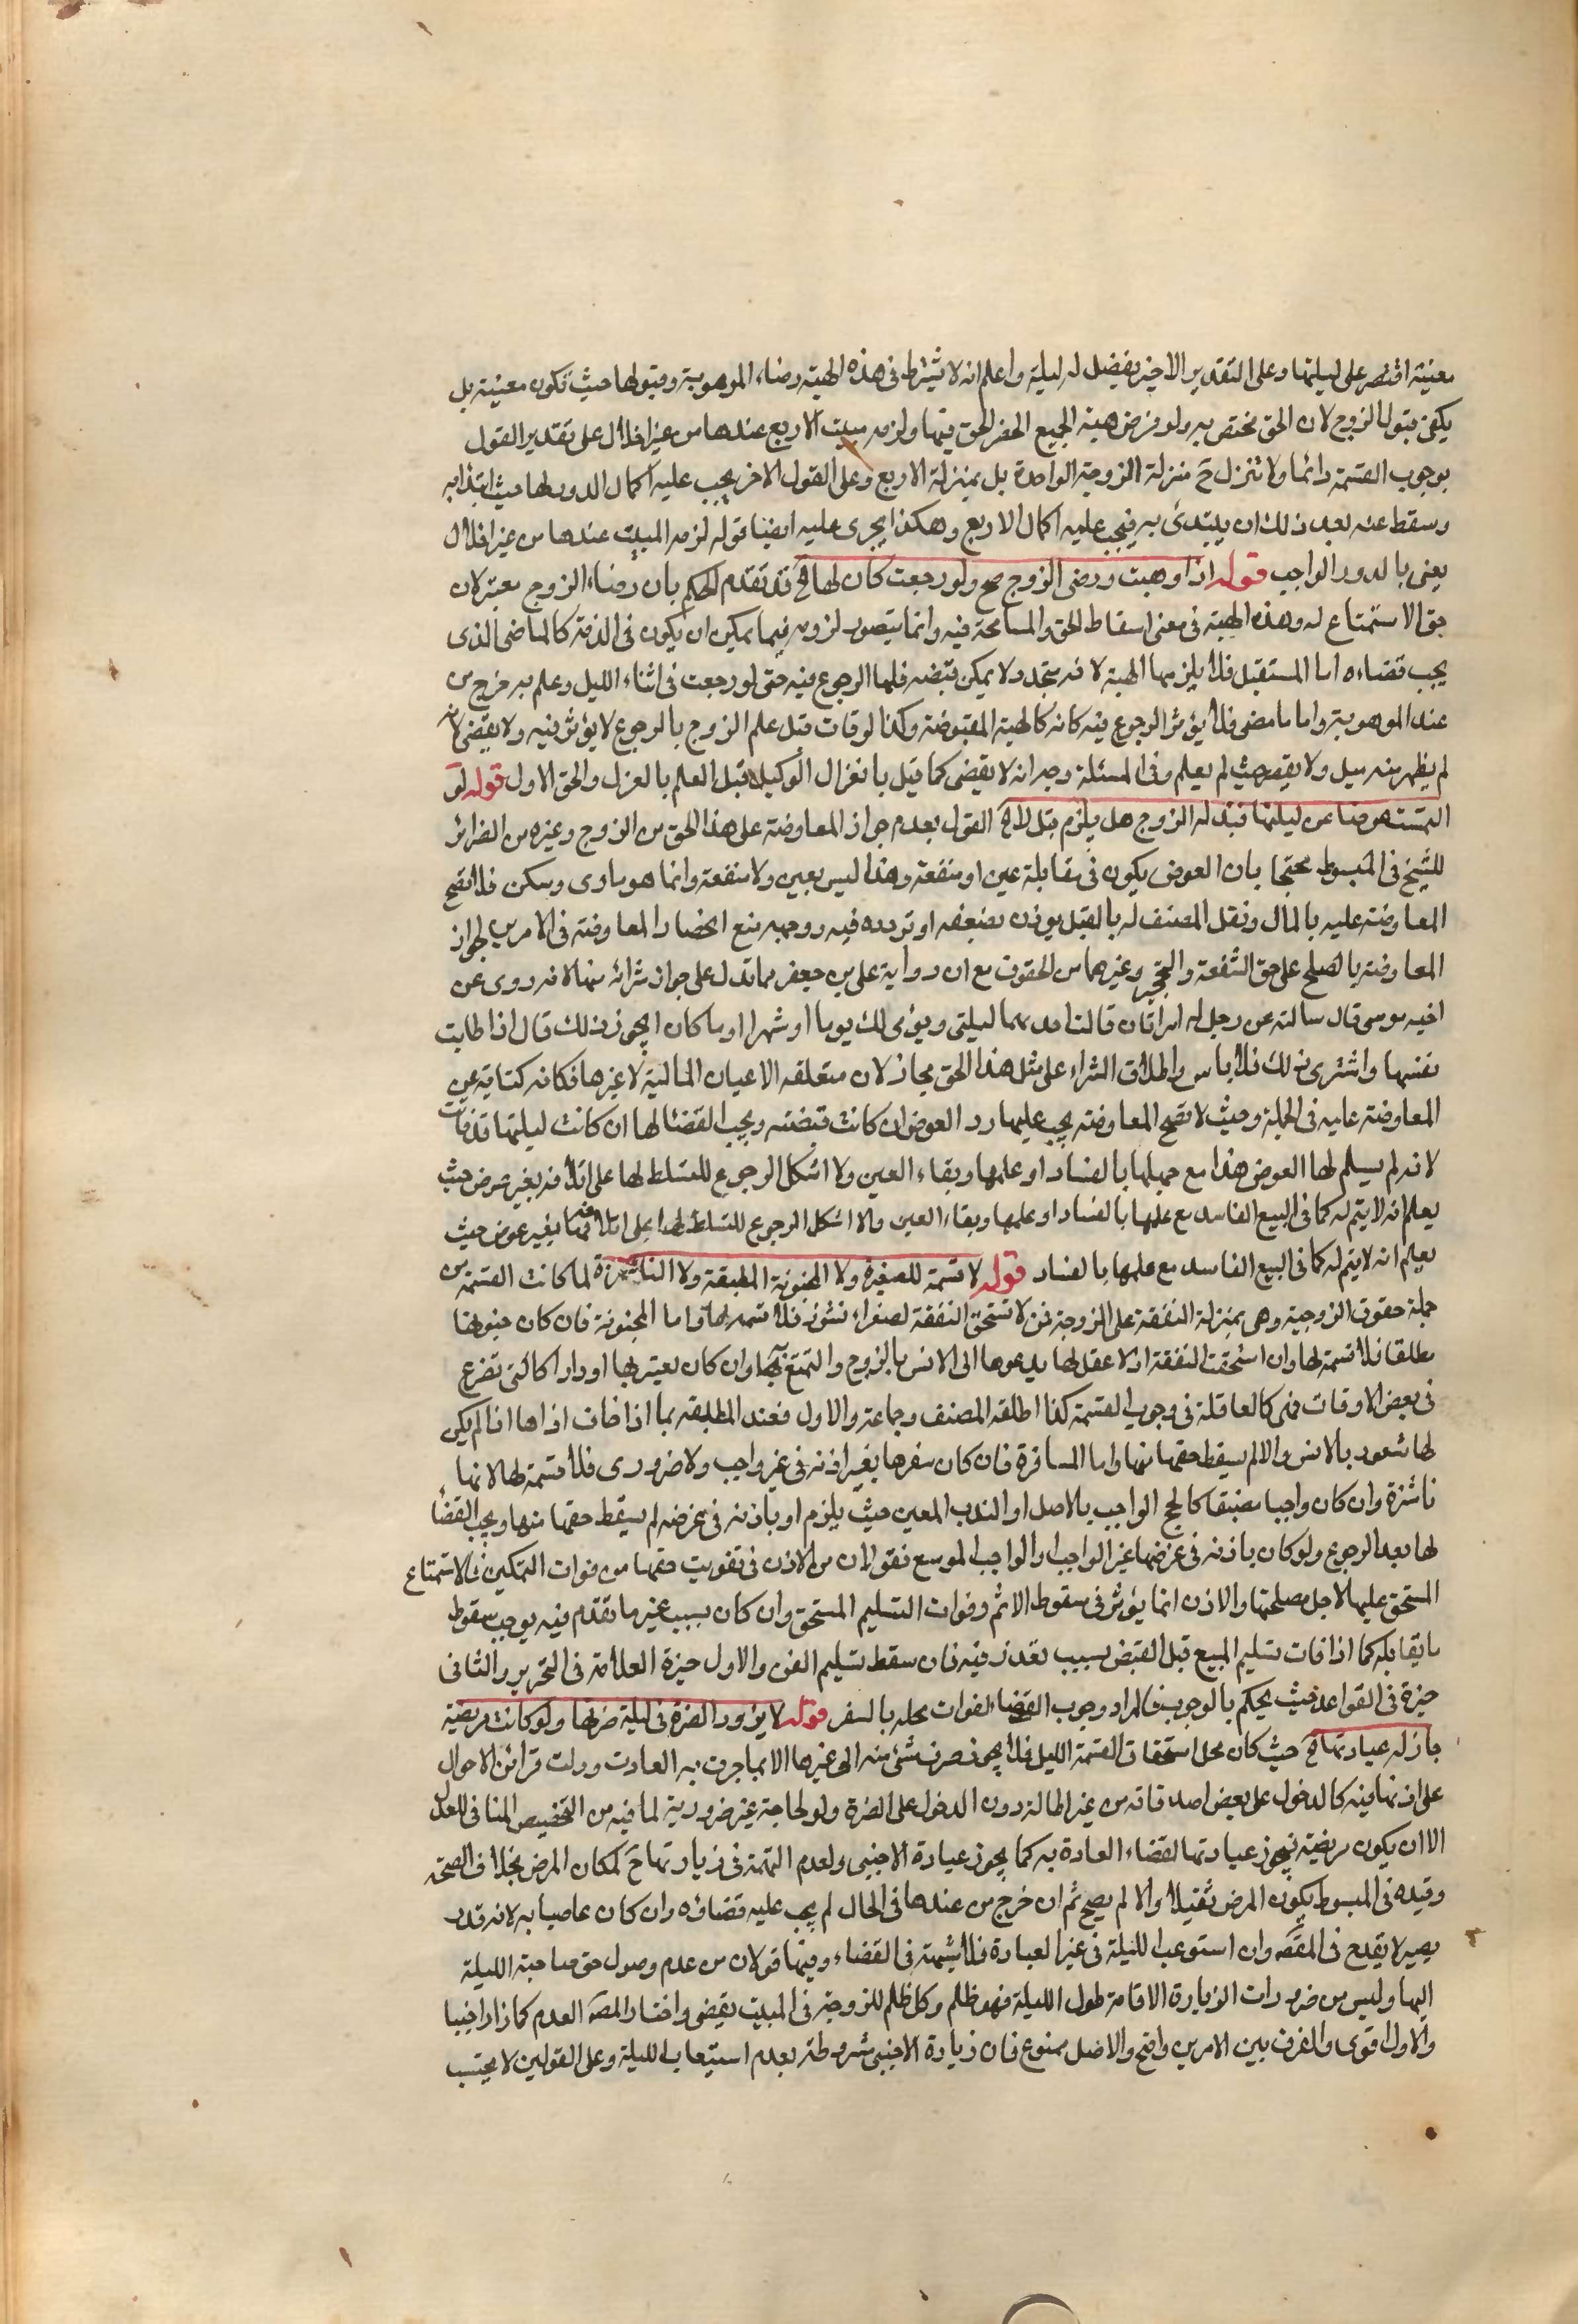 معينة اقتصر على ليلتها وعلى التقدير الاخير يفضل له ليلة واعلم انه لا يشترط فى هذه الهبة رضاء الموهوبة وقبولها حيث تكون معينة بل
يكفى قبول الزوج لان الحق مختص به ولو فرض هبة الجميع انحصر الحق فيها ولزمه مبيت الاربع عندها من غير اخلال على تقدير القول
بوجوب القسمة دائما ولا تنزل ح منزلة الزوجة الواحدة بل بمنزلة الاربع وعلى القول الاخر يجب عليه اكمال الدور لها حيث ابتدا به
وسقط عنه بعد ذلك ان يبتدئ به فيجب عليه اكمال الاربع وهكذا يجرى عليه ايضا قوله لزمه المبيت عندها من غير اخلال
يعنى بالدور الواجب قوله اذا وهبت ورضى الزوج صح ولو رجعت كان لها الخ قد تقدم الحكم بان رضاء الزوج معتبر لان
حق الاستمتاع له وهذه الهبة فى معنى اسقاط الحق والمسامحة فيه وانما يتصور لزومه فيما يمكن ان يكون فى الذمة كالماضى الذى
يجب قضاءه اما المستقبل فلا يلزمها الهبة لانه يتجدد ولا يمكن قبضه فلها الرجوع فيه حتى لو رجعت فى اثناء الليل وعلم به خرج من
عند الموهوبة واما ما مضى فلا يؤثر الرجوع فيه كانه كالهبة المقبوضة وكذا لو فات قبل علم الزوج بالرجوع لا يؤثر فيه ولا يقضى لانه
لم يظهر منه ميل ولا يقصر حيث لم يعلم وفى المسئلة وجه انه لا يقضى كما قيل بانعزال الوكيل قبل العلم بالعزل والحق الاول قوله لو
التمست عوضا عن ليلتها فبذله الزوج هل يلزم قيل لا الخ القول بعدم جواز المعاوضة على هذا الحق من الزوج وغيره من الضرائر
للشيخ فى المبسوط محتجا بان العوض يكون فى مقابلة عين او منفعة وهذا ليس بعين ولا منفعة وانما هو ماوى وسكن فلا تصح
المعاوضة عليه بالمال ونقل المصنف له بالقيل يوذن بضعفه او تردده فيه ووجهه منع انحصار المعاوضة فى الامرين لجواز
المعاوضة بالصلح على حق الشفعة والتحجير وغيرهما من الحقوق مع ان رواية على بن جعفر مما تدل على جواز شرائه منها لانه روى عن
اخيه موسى قال سالته عن رجل له امراتان قالت احديهما ليلتى ويومى لك يوما او شهرا او ما كان ايجوز ذلك قال اذا طابت
نفسها واشترى ذلك فلا باس واطلاق الشراء على مثل هذا الحق مجاز لان متعلقه الاعيان المالية لا غيرها فكانه كناية عن
المعاوضة عليه فى الجملة وحيث لا تصح المعاوضة يجب عليها رد العوض ان كانت قبضته ويجب القضا لها ان كانت ليلتها قد فاتت
لانه لم يسلم لها العوض هذا مع جهلها بالفساد او علمها وبقاء العين ولا اشكل الرجوع للتسلط لها على اتلافه بغير عوض حيث
يعلم انه لا يتم له كما فى البيع الفاسد مع علمها بالفساد او علمها وبقاء العين والا اشكل الرجوع للتسلط لها على اتلافها بغير عوض حيث
يعلم انه لا يتم له كما فى البيع الفاسد مع علمها بالفساد قوله لا قسمة للصغيرة ولا المجنونة المطبقة ولا الناشزة لما كانت القسمة من
جملة حقوق الزوجية وهى بمنزلة النفقة على الزوجة فمن لا تستحق النفقة لصغر او نشوز فلا قسمة لها واما المجنونة فان كان جنونها
مطلقا فلا قسمة لها وان استحقت النفقة اذ لا عقل لها يدعوها الى الانس بالزوج والتمتع به وان كان يعتريها ادوارا كالتى تصرع
فى بعض الاوقات فهى كالعاقلة فى وجوب القسمة كذا اطلقه المصنف وجماعة والاول فعند المطبقة بما اذا خاف اذاها اذا لم يكن
لها شعور بالانس والا لم يسقط حقها منها واما المسافرة فان كان سفرها بغير اذنه فى غير واجب ولا ضرورى فلا قسمة لها لانها
ناشزة وان كان واجبا مضيقا كالحج الواجب بالاصل او النذر المعين حيث يلزم او باذنه فى غرضه لم يسقط حقها منها ويجب القضا
لها بعد الرجوع ولو كان باذنه فى غرضها غير الواجب او الواجب الموسع فقولان من الاذن فى تفويت حقها من فوات التمكين والاستمتاع
المستحق عليها لاجل مصلحتها والاذن انما يؤثر فى سقوط الاثم وفوات التسليم المستحق وان كان بسبب غير ما تقدم فيه يوجب سقوط
ما يقابله كما اذا فات تسليم المبيع قبل القبض بسبب تعذر فيه فان سقط تسليم الثمن والاول خيرة العلامة فى التحرير والثانى
خيرة فى القواعد حيث يحكم بالوجوب فالمراد وجوب القضا لفوات محله بالسفر قوله لا يزور الضرة فى ليلة ضرتها ولو كانت مريضة
جاز له عيادتها الخ حيث كان محل استحقاق القسمة الليل فلا يجوز صرف شئ منه الى غيرها الا بما جرت به العادت ودلت قرائن الاحوال
على اذنها فيه كالدخول على بعض اصدقائه من غير اطالة دون الدخول على الضرة ولو لحاجة غير ضرورية لما فيه من التخصيص المنافى للعدل
الا ان يكون مريضة فيجوز عيادتها لقضاء العادة به كما يجوز عيادة الاجنبى ولعدم التهمة فى زيارتها ح لمكان المرض بخلاف الصحة
وقيده فى المبسوط بكون المرض ثقيلا والا لم يصح ثم ان خرج من عندها فى الحال لم يجب عليه قضاؤه وان كان عاصيا به لانه قدر
يسير لا يقدح فى المقصه وان استوعب الليلة فى غير العيادة فلا شبهة فى القضاء وفيها قولان من عدم وصول حق صاحبة الليلة
اليها وليس من ضرورات الزيارة الاقامة طول الليلة فهو ظلم وكل ظلم للزوجة فى المبيت يقضى واختار المصه العدم كما زار اجنبيا
والاول اقوى والفرق بين الامرين واضح والاصل ممنوع فان زيارة الاجنبى مشروطة بعدم استيعاب الليلة وعلى القولين لا يحتسب